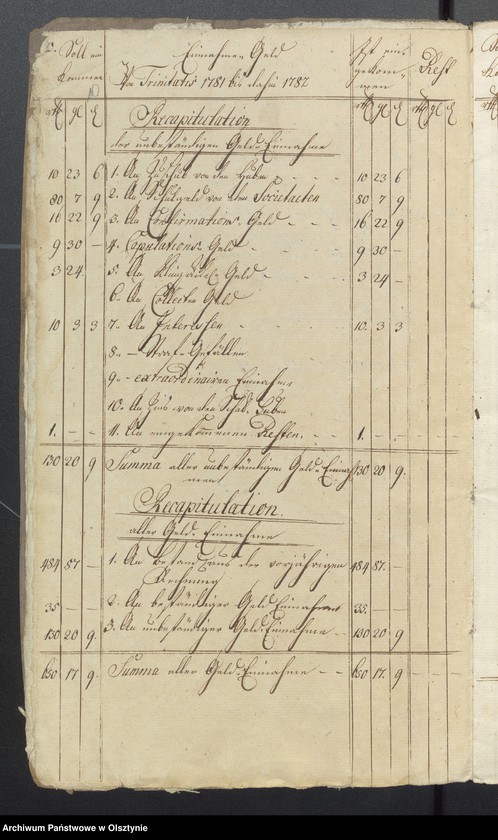 Soll ein Einnahme Geld Ist ein
kommen Von Trinitatis 1781 bis dahin 1782 gekom- Rest
men
rthl gl ₰ Recapitulation rthl gl ₰ rthl gl ₰
der unbeständigen Geld-Einnahme
10 23 6 1. An Zuschub von den Huben 10 23 6
80 7 9 2. An Schulgeld von den Societaeten 80 7 9
16 22 9 3. An Confirmations-Geld 16 22 9
9 30 — 4. Copulations-Geld 9 30 —
3 24 5. An Klingsäckl-Geld 3 24 —
6. An Collecten Geld
10 3 3 7. An Interessen 10. 3 3
8. — Straf-Gefällen
9. - extraordinairen Einnahme
10. An Zins von den Huben
1. — — 11. An eingekommenen Resten. 1. — —
130 20 9 Summa aller unbeständigen Geld-Einnah- 130 20 9.
men
Recapitulation.
aller Geld-Einnahme
484 87 — 1. An Bestand aus der vorjährigen 484 87. —
Rechnung
35 — — 2. An beständiger Geld Einnahme 35. — —
130 20 9. 3. An unbeständiger Geld-Einnahme 130 20 9.
650 17 9. Summa aller Geld-Einnahme 650 17. 9
Archiwum Państwowe w Olsztynie